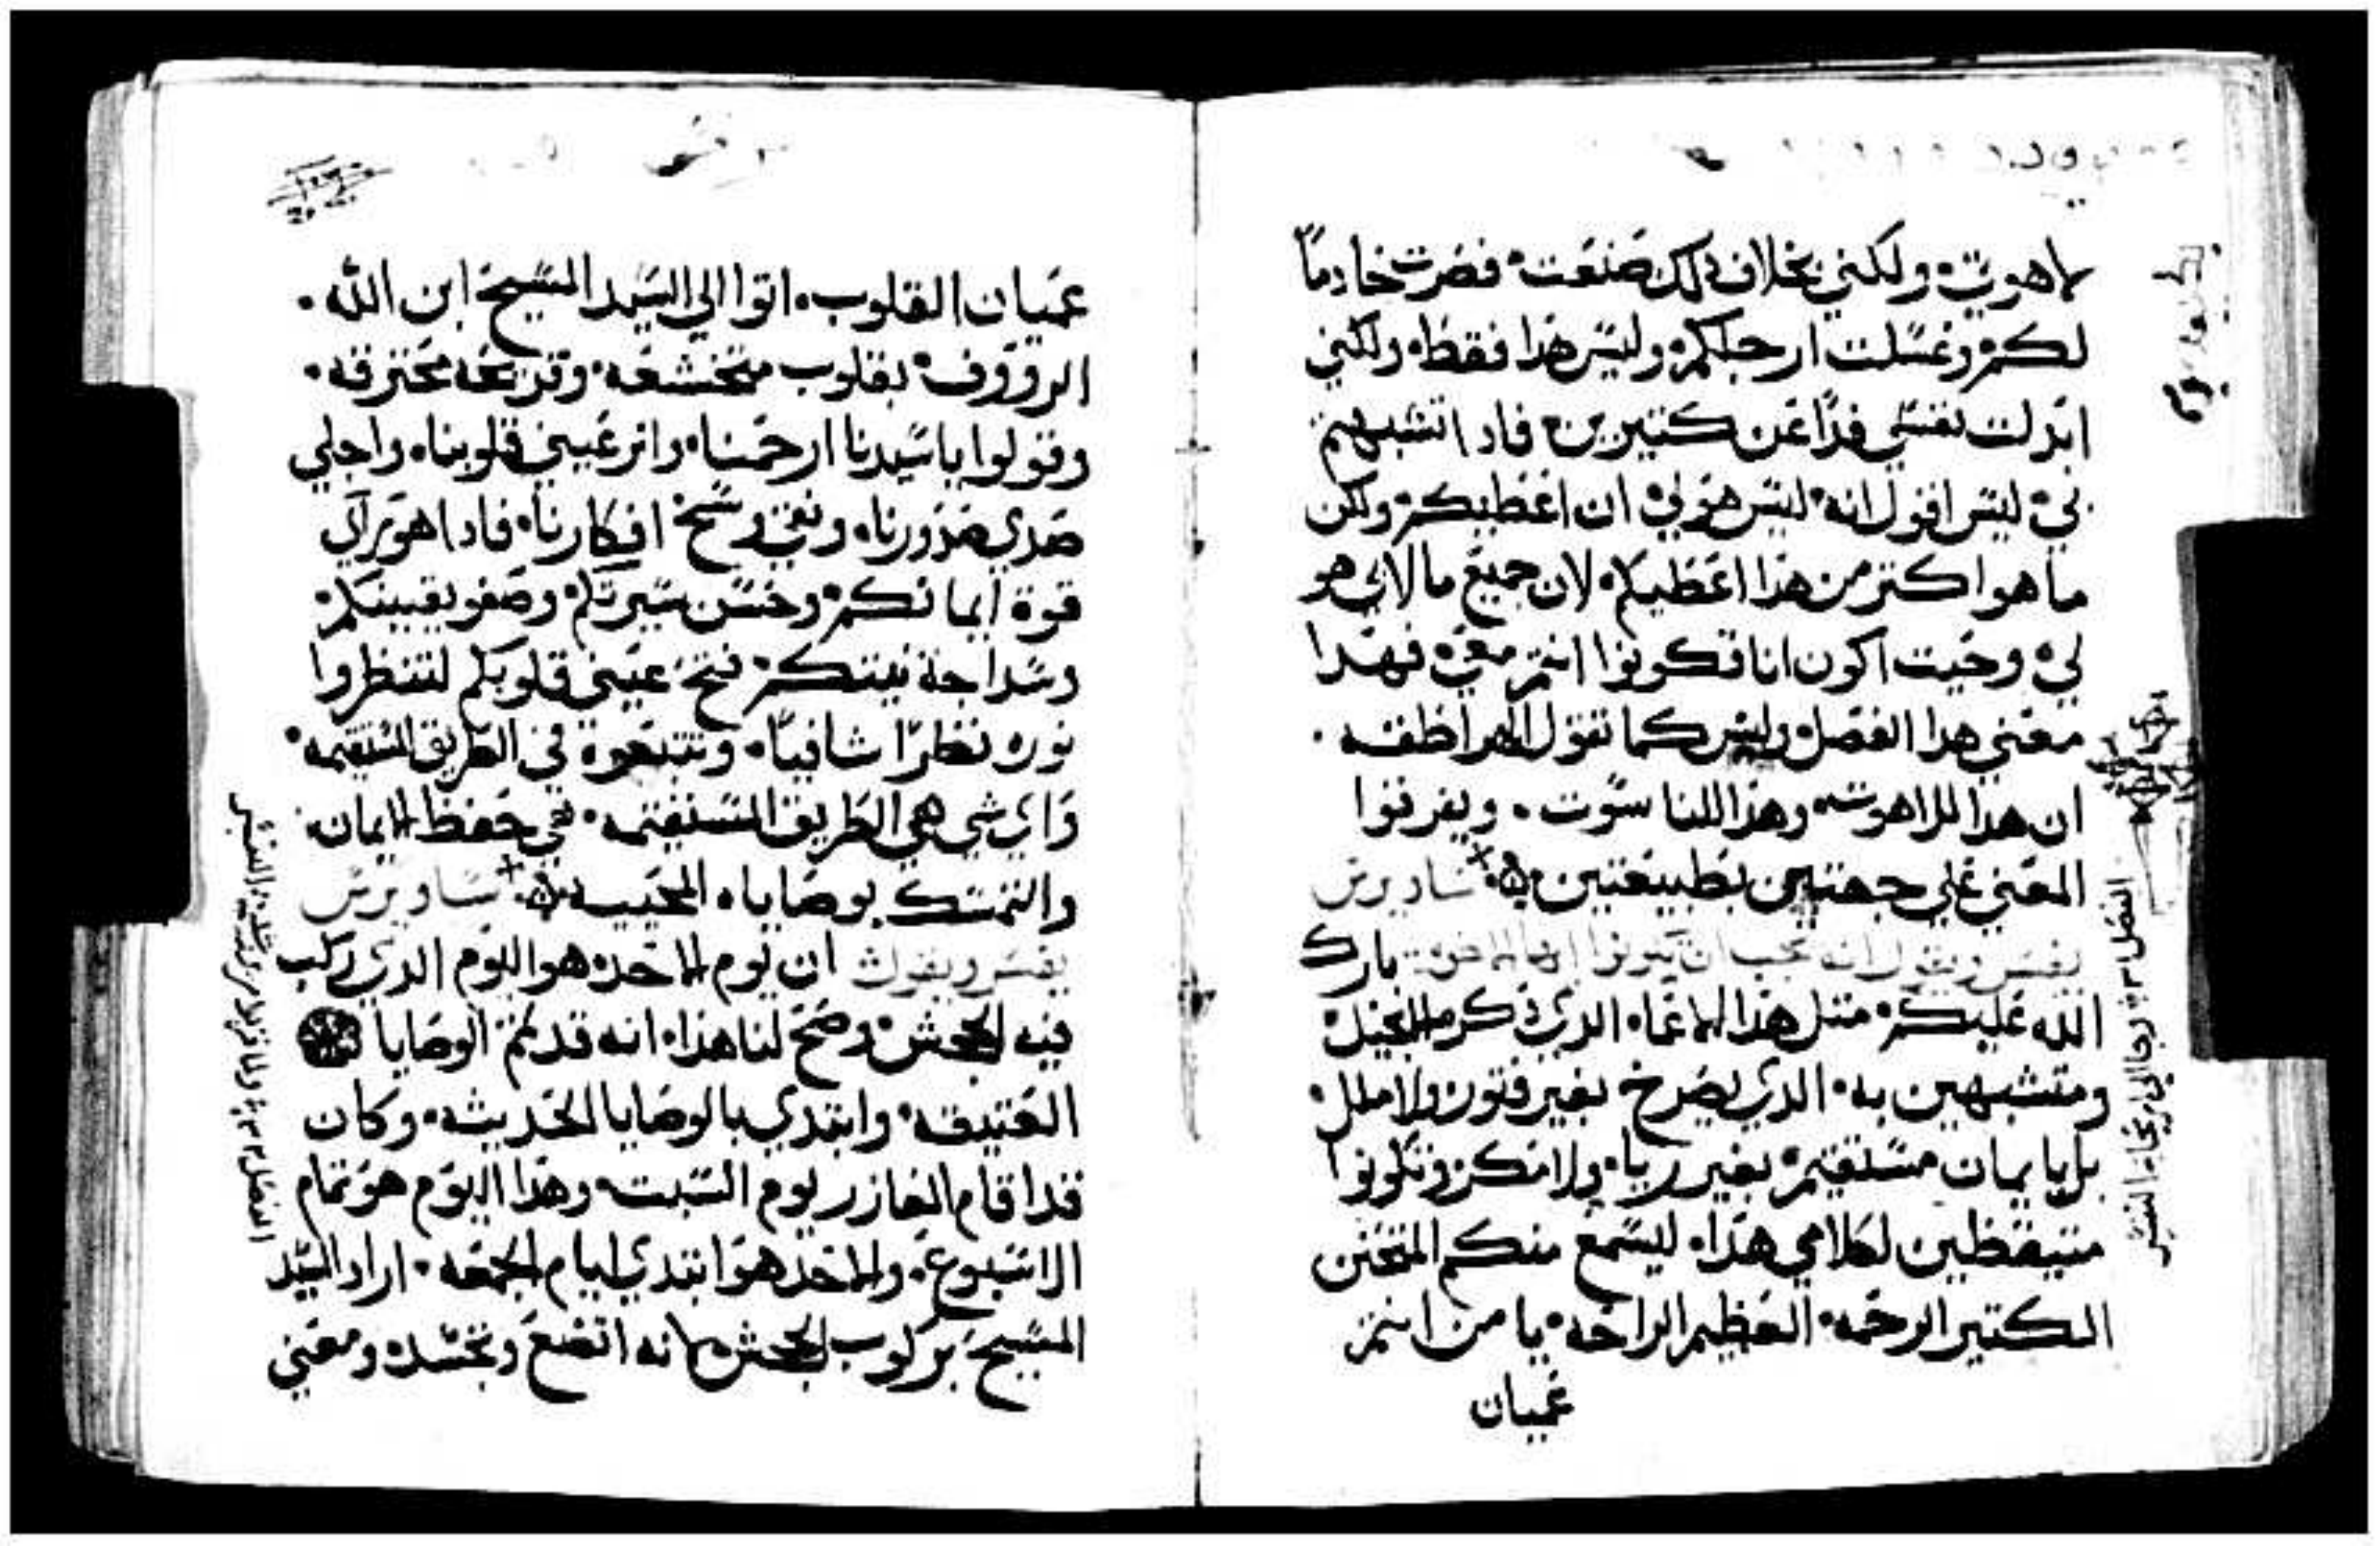 لاهوتي ولكني بخلاف ذلك صنعت فصرت خادماً
لكم وغسلت ارجلكم وليس هذا فقط ولكني
ابدلت نفسي فدًا عن كتيرين فادا تشبهتم
بي ليس اقول انه ليس هو لي ان اعطيكم ولكن
ما هو اكتر من هذا اعطيكم لان جميع ما لابي هو
لي وحيت اكون انا تكونوا انتم معي فهدا
معني هدا الفصل وليس كما تقول الهراطقه
ان هدا للاهوت وهدا للناسوت ويفرقوا
المعني علي جهتين بطبيعتين ساويرس
يفسر ويقول انه يجب ان تكونوا ايها الاخوه بارك
الله عليكم متل هذا الاعما الدي ذكر الانجيل
ومتشبهين به الدي يصرخ بغير فتور ولا ملل
بل بايمان مستقيم بغير رياء ولا مكر وتكونوا
متيقظين لكلامي هذا ليسمع منكم المتحنن
الكتير الرحمه العظيم الراحه يا من انتم
عميان
عميان القلوب اتوا الي السيد المسيح ابن الله
الرووف بقلوب متخشعه وقريحه محترقه
وقولوا يا سيدنا ارحمنا وانر عيني قلوبنا واجلي
صدي صدورنا ونقي وسخ افكارنا فادا هو يراي
قوة ايمانكم وحسن سيرتكم وصفو يقينكم
وسداجة نيتكم فتح عيني قلوبكم لتنظروا
نوره نظرًا شافيًا وتتبعوة في الطريق المستقيمه
واي شي هي الطريق المستقيمه هي حفظ الايمان
والتمسك بوصاياه المحييه ساويرس
يفسر ويقول ان يوم الاحد هو اليوم الدي ركب
فيه الجحش وصح لنا هذا انه قد تمم الوصايا
العتيقه وابتدي بالوصايا الحديثه وكان
قد اقام العازر يوم السبت وهذا اليوم هو تمام
الاسبوع والاحد هو ابتدي ايام الجمعه اراد السيد
المسيح بركوب الجحش لانه اتضع وتجسد ومعني